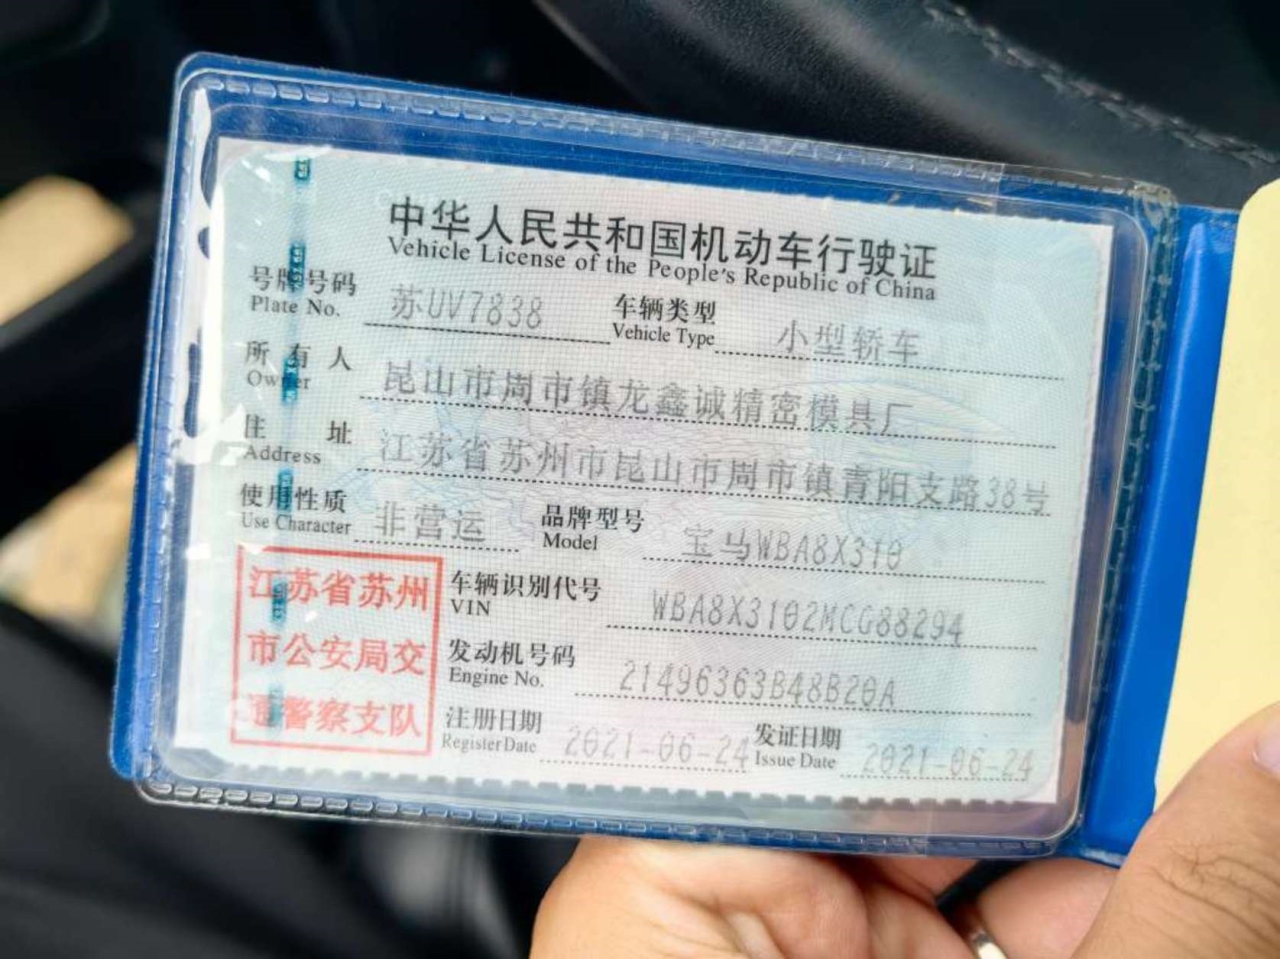 中华人民共和国机动车行驶证
Vehicle License of the People's Republic of China
号牌号码 苏UV7838 车辆类型 小型轿车
Plate No. Vehicle Type
所有人 昆山市周市镇龙鑫诚精密模具厂
Owner
住址 江苏省苏州市昆山市周市镇青阳支路38号
Address
使用性质 非营运 品牌型号 宝马WBA8X310
Use Character Model
江苏省苏州
市公安局交
通警察支队
车辆识别代号 WBA8X3102MCG88294
VIN
发动机号码 21496363B48B20A
Engine No.
注册日期 2021-06-24 发证日期 2021-06-24
Register Date Issue Date